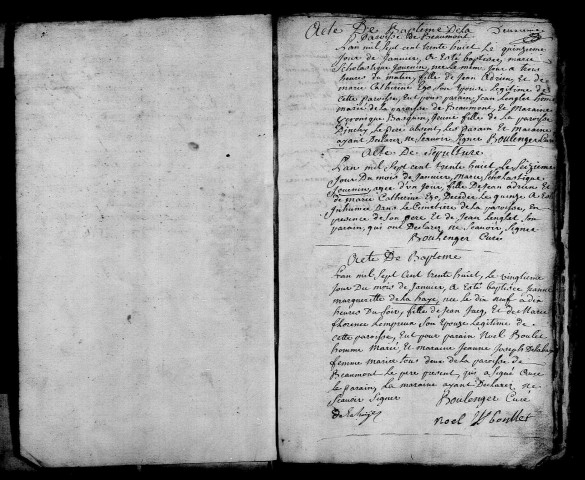 Acte De Bapteme De la
Paroisse de Beaumont
Deuxieme
L'an mil Sept cent trente huict Le quinzieme
jour de Janvier, a Esté baptisée, marie
Scholastique Jouenin, née le même jour a trois
heures du matin, fille de Jean Adrien, Et de
marie Catherine Ego, son Epouse Legitime de
cette paroisse, Eut pour parain, Jean Lenglet homme
marié de la paroisse de Beaumont, Et Maraine
Veronique Basquin, Jeune fille de la paroisse
D'inchy, Le pere absent, Les Parain et maraine
ayant Declarez, ne Scavoir Signer Boulenger Curé
Acte De Sepulture
L'an mil Sept cent trente huict, le Seizieme
Jour Du mois de Janvier, marie Scholastique
Jouenin, agée d'un jour, fille De Jean adrien Et
de marie Catherine Ego, Decedée Le quinze a Esté
Inhumée Dans le Cimetiere de la paroisse, En
presence de Son pere Et de Jean Lenglet Son
parain, qui ont Declarez ne Scavoir, Signer
Boulenger Curé
Acte De Bapteme
L'an mil Sept Cent trente huict, le vingtieme
jour Du mois de Janvier, a Esté baptisée Jeanne
margueritte de la haye, née le dix neuf a dix
heures Du Soir, fille de Jean Jacq, Et de Marie
florence Lempreur Son Epouse Legitime de
cette paroisse, Eut pour parain Noel Boulet
homme Marié, et maraine Jeanne Joseph Delahaye
femme mariée tous deux de la paroisse de
Beaumont le pere present, qui a Signé Avec
le parain, la maraine ayant Declarez ne
Scavoir Signer Boulenger Curé
Delahaye
noel boullet